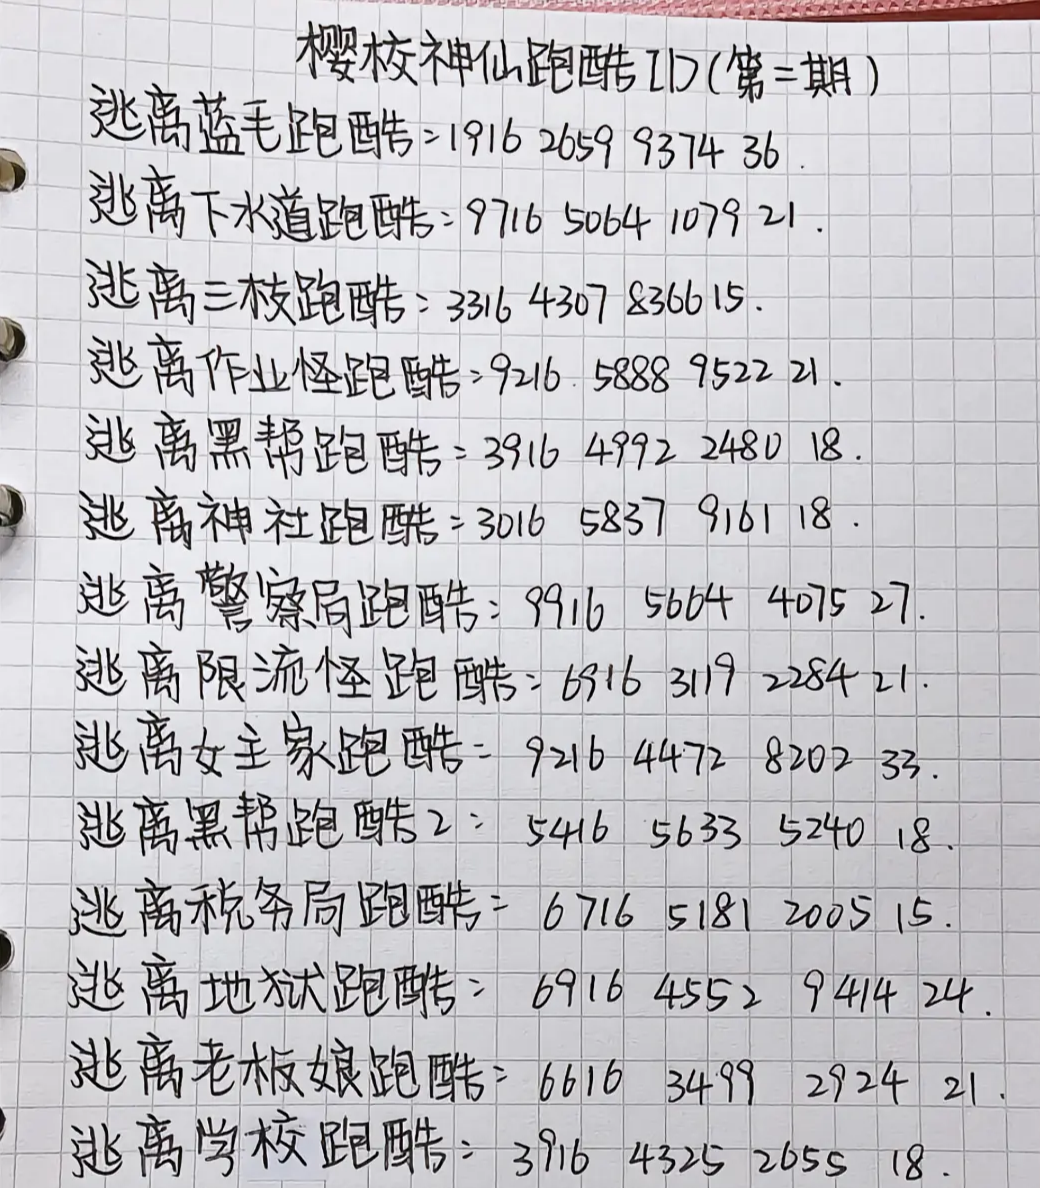 樱校神仙跑酷ID(第二期)
逃离蓝毛跑酷:1916 2659 9374 36.
逃离下水道跑酷:9716 5064 1079 21.
逃离三枝跑酷:3316 4307 8366 15.
逃离作业怪跑酷:9216 5888 9522 21.
逃离黑帮跑酷:3916 4992 2480 18.
逃离神社跑酷:3016 5837 9161 18.
逃离警察局跑酷:9916 5664 4075 27.
逃离限流怪跑酷:6916 3119 2284 21.
逃离女主家跑酷:9216 4472 8202 33.
逃离黑帮跑酷2:5416 5633 5240 18.
逃离税务局跑酷:6716 5181 2005 15.
逃离地狱跑酷:6916 4552 9414 24.
逃离老板娘跑酷:6616 3499 2924 21.
逃离学校跑酷:3916 4325 2655 18.